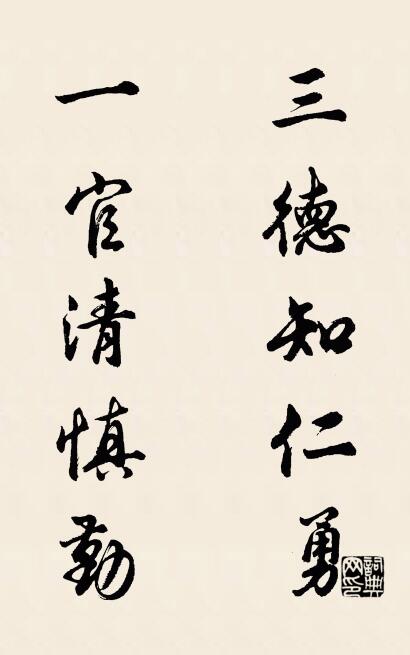 三德知仁勇
一官清慎勤
詞典網印